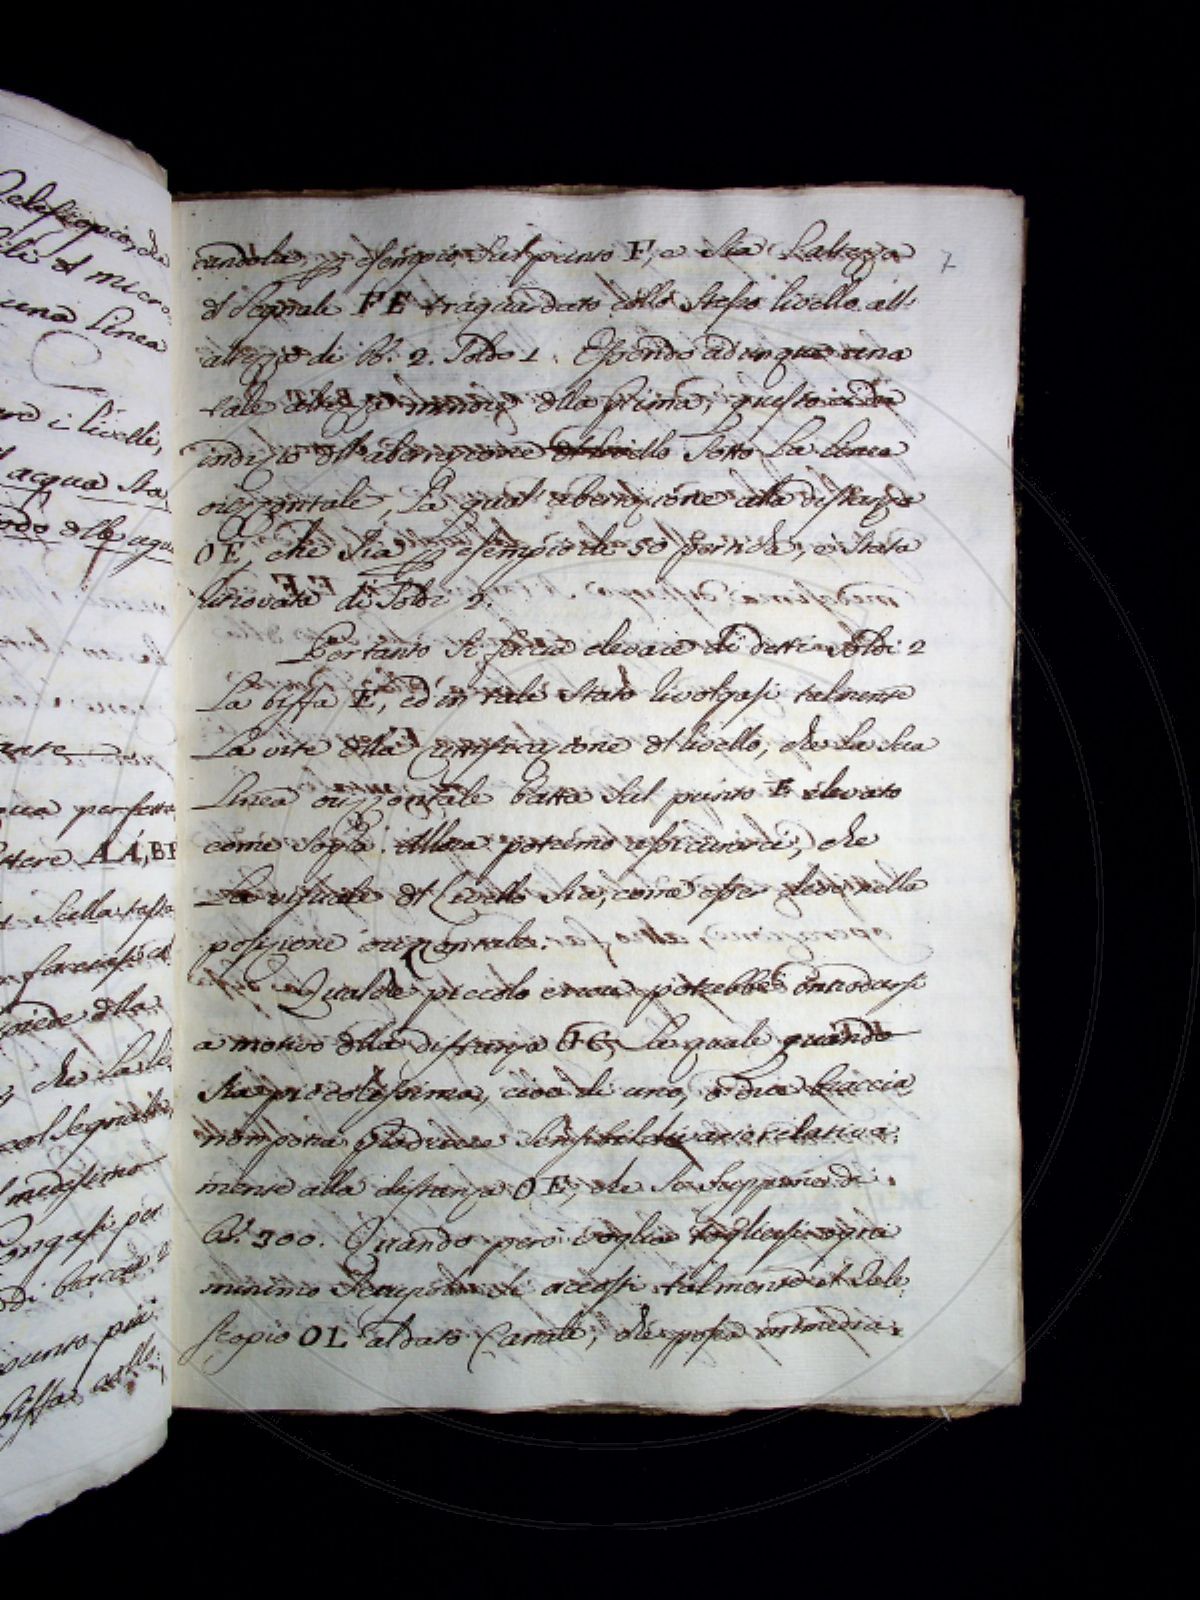 7
candola p esempio sul punto F, e sia l'altezza
dl segnale FE traguardato collo stesso livello all'
altezza di B. 2. soldo 1. Essendo adunque una
tale altezza minore dlla prima, questo ci dà
indizio dll'aberrazione dl livello sotto la linea
orizzontale, la qual aberrazione alla distanza
OE, che sia p esempio di 50 pertiche, è stata
ritrovata di soldi 2.
Pertanto si faccia elevare di detti soldi 2
la biffa E, ed in tale stato rivolgasi talmente
la vite dlla rettificazione dl livello, che la sua
linea orizzontale batta sul punto E elevato
come sopra. Allora potremo assicurarci, che
la visuale dl livello sia, come esser deve nella
posizione orizontale.
Qualche piccolo errore potrebbe introdursi
a motivo dlla distanza la quale quando
sia piccolissima, cioè di uno, o due braccia
non potrà produrre sensibil divario relativa:
mente alla distanza OE, che si suppone di
B. 300. Quando però voglia togliersi ogni
minimo scrupolo si accosti talmente il Tele:
scopio OL al dato Canale, che possa immedia:
Telescopio, che
fili dl micro:
una linea
i livelli,
acqua sta
dlle
perfetta
AA, BB
sulla testa
facciasi
piede dlla
che la li:
col segnale
medesimo
Pongasi per
di braccia 2
punto più
biffa, collo